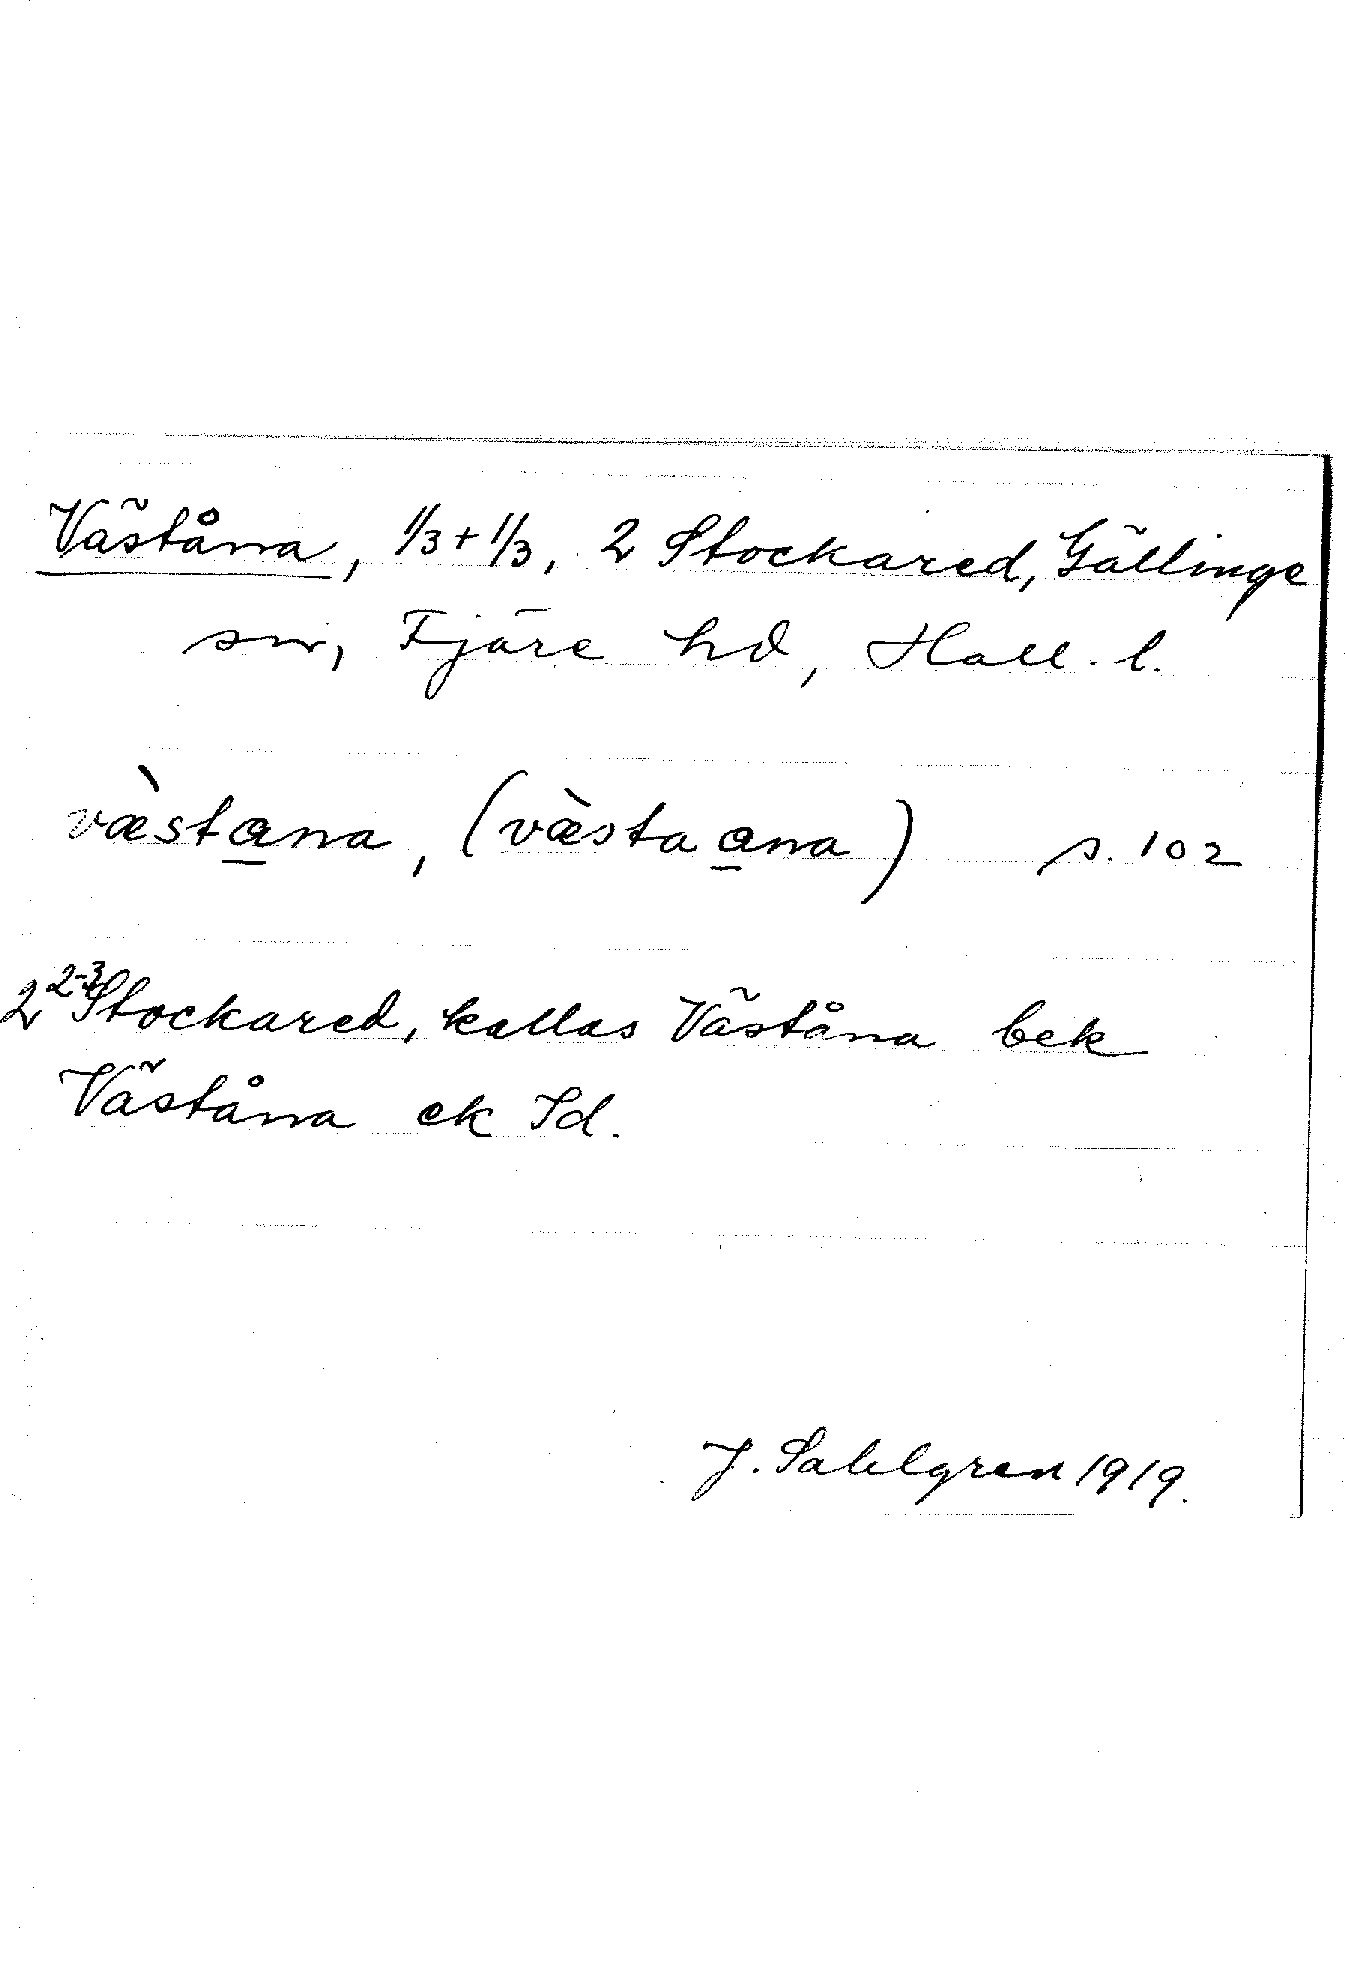 Väståna, 1/3 + 1/3, 2 Stockared, Gällinge
sn, Fjäre hd, Hall. l.
væ̀stana, (væ̀sta ana) s. 102
2 2-3 Stockared, kallas Väståna bek
Väståna ek Id.
J. Sahlgren 1919.